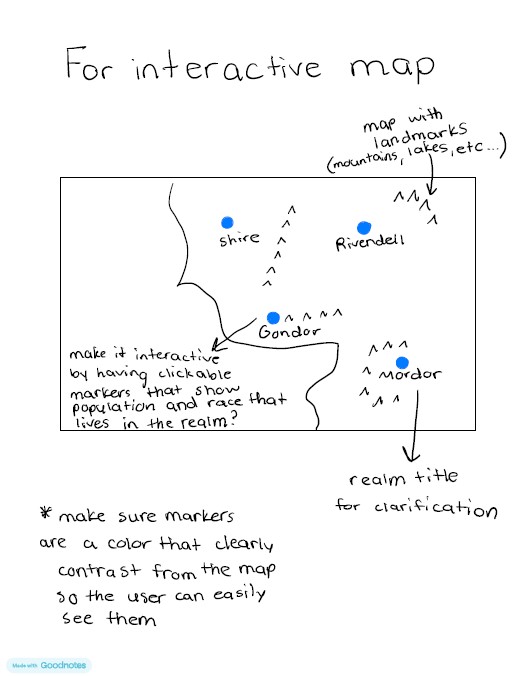 For interactive map
map with
landmarks
(mountains, lakes, etc...)
Shire
Rivendell
Gondor
make it interactive
by having clickable
markers that show
population and race that
lives in the realm?
Mordor
realm title
for clarification
* make sure markers
are a color that clearly
contrast from the map
so the user can easily
see them
Made with Goodnotes